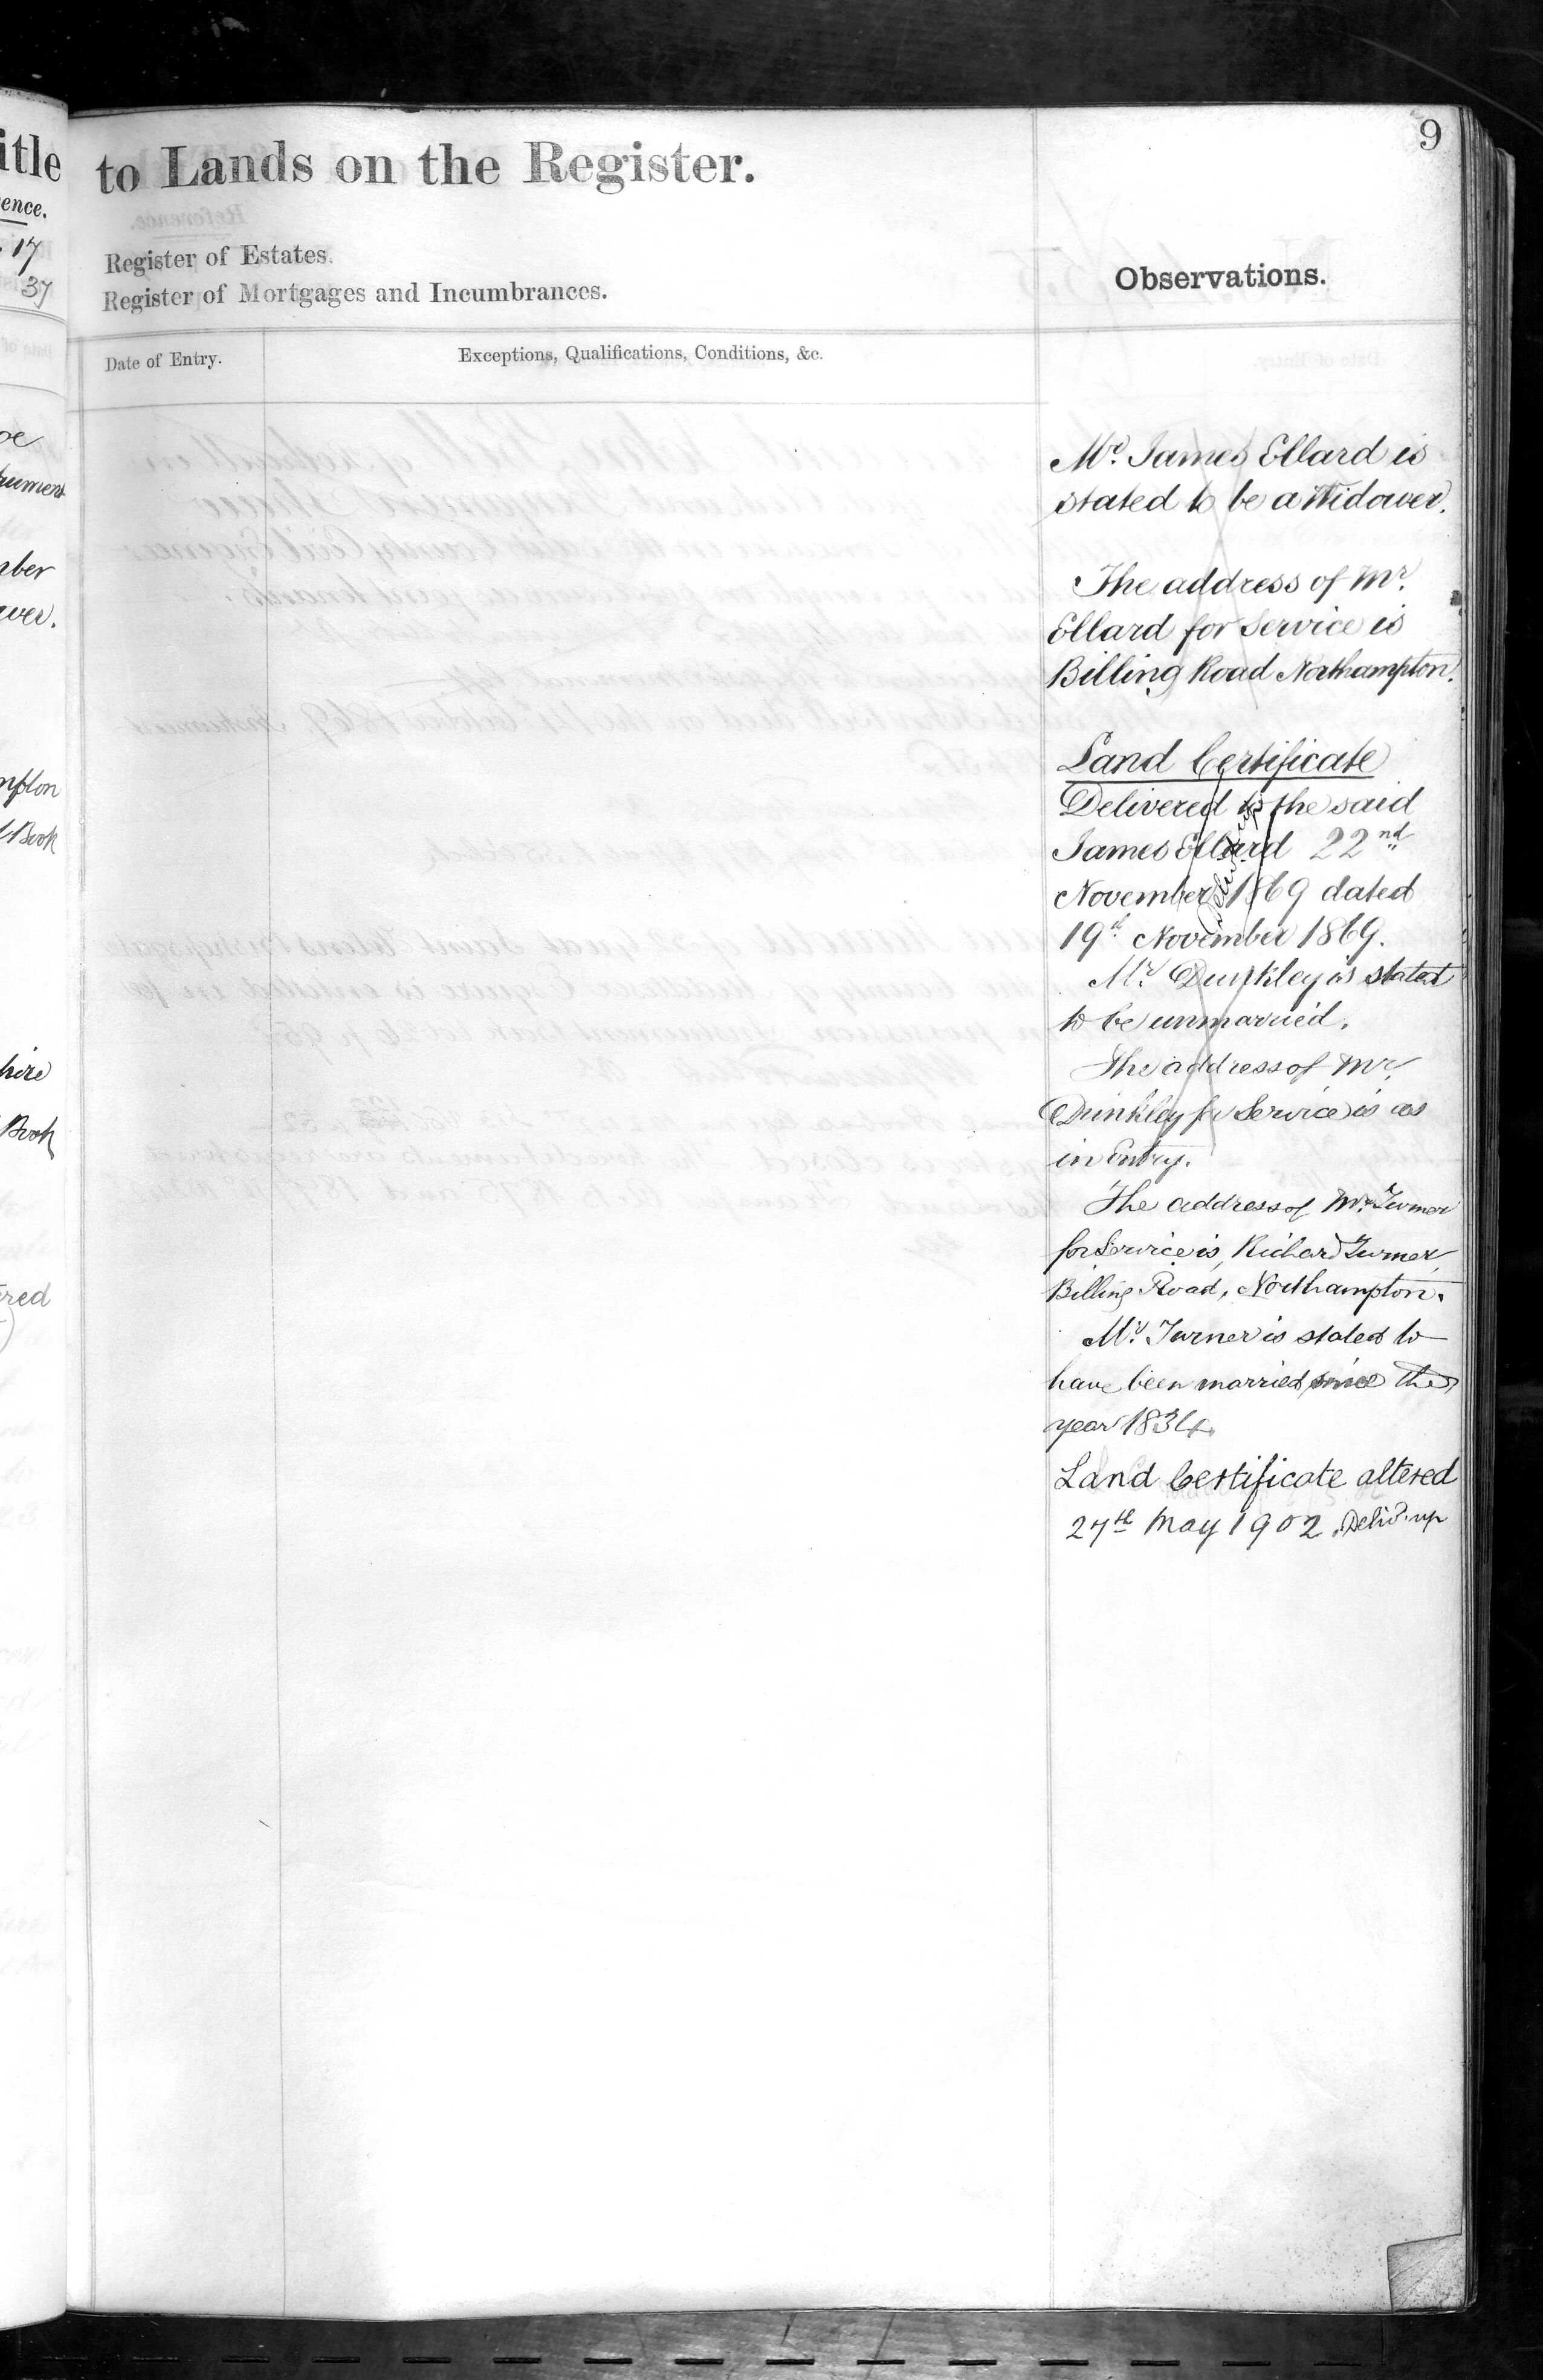 itle
ence.
17
37
oe
rument
aber
wer.
mpton
Book
hire
Book
ered
9
to Lands on the Register.
Register of Estates.
Register of Mortgages and Incumbrances.
Observations.
Date of Entry.
Exceptions, Qualifications, Conditions, &c.
Mr. James Ellard is
stated to be a Widower.
The address of Mr.
Ellard for Service is
Billing Road Northampton.
Land Certificate
Delivered to the said
James Ellard 22nd
November 1869 dated
19th November 1869.
Mr. Dunkley is stated
to be unmarried.
The address of Mr.
Dunkley for Service is as
in Entry.
The address of Mr. Turner
for Service is, Richard Turner,
Billing Road, Northampton.
Mr. Turner is stated to
have been married since the
year 1834.
Land Certificate altered
27th May 1902. Delivd. up